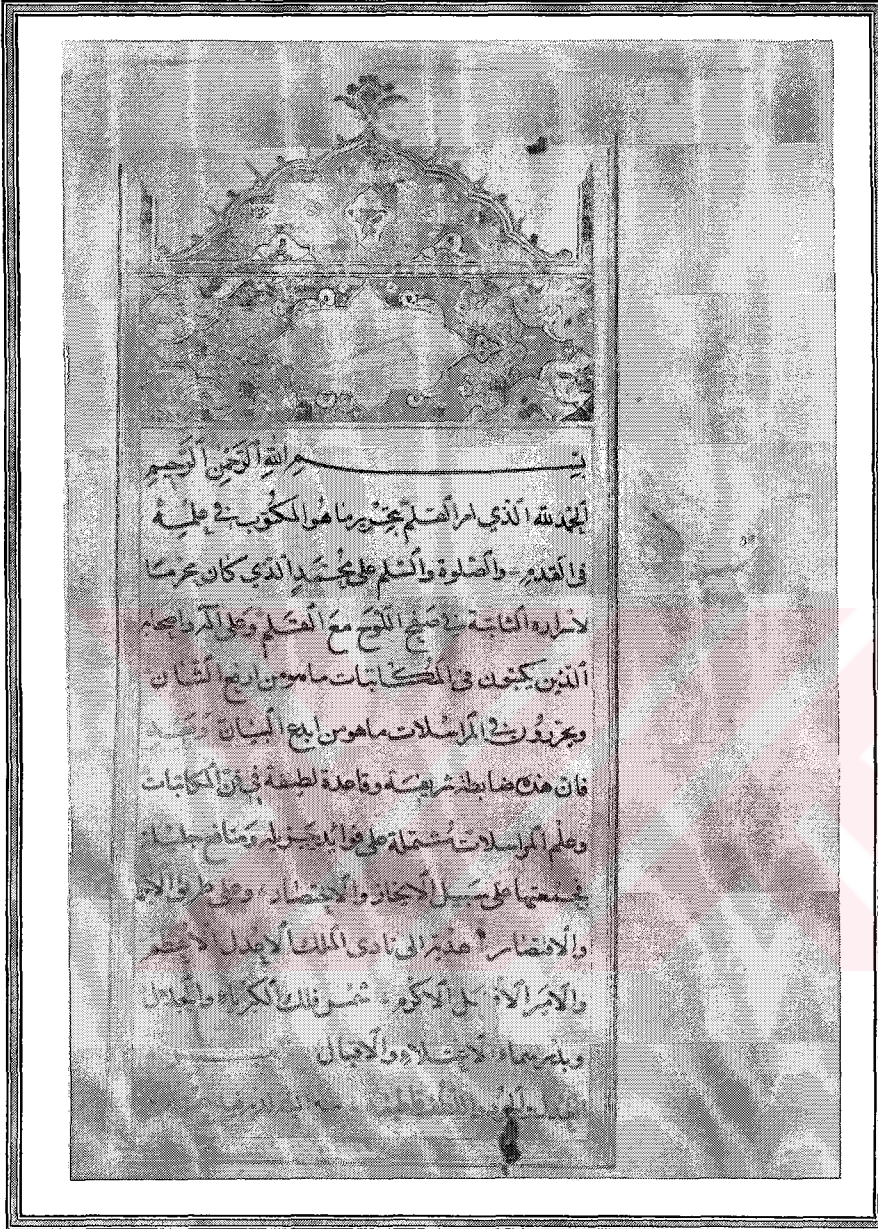 بسم الله الرحمن الرحيم
الحمد لله الذي امر القلم بتحرير ما هو المكتوب في علمه
في القدم والصلوة والسلم على محمد الذي كان محرما
لاسراره الثابتة في صفح اللوح مع القلم وعلى آله واصحابه
الذين يكتبون في المكاتبات ما هو من ارفع الشان
ويحررون في المراسلات ما هو من ابدع البيان وبعد
فان هذه ضابطة شريفة وقاعدة لطيفة في فن المكاتبات
وعلم المراسلات مشتملة على فوائد جزيلة ومنافع جليلة
فجمعتها على سبيل الايجاز والاختصار وعلى طريق
والاقتصار هدية الى نادى الملك الاعدل الاعظم
والامير الاكرم شمس فلك الكبرياء والجلال
وبدر سماء الاعتلاء والاقبال